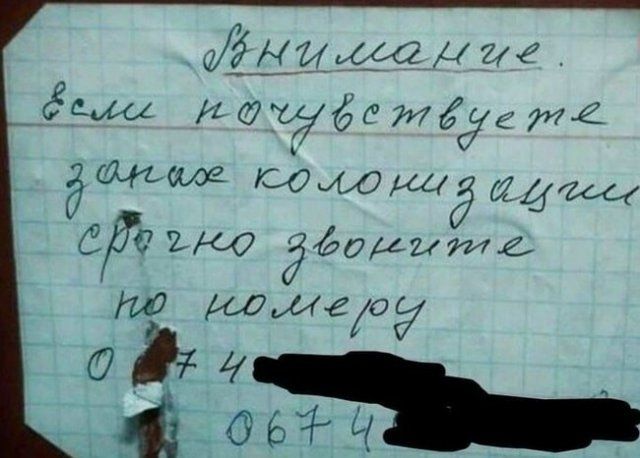 Внимание.
Если почувствуете
запах колонизации
срочно звоните
по номеру
0 74
0674